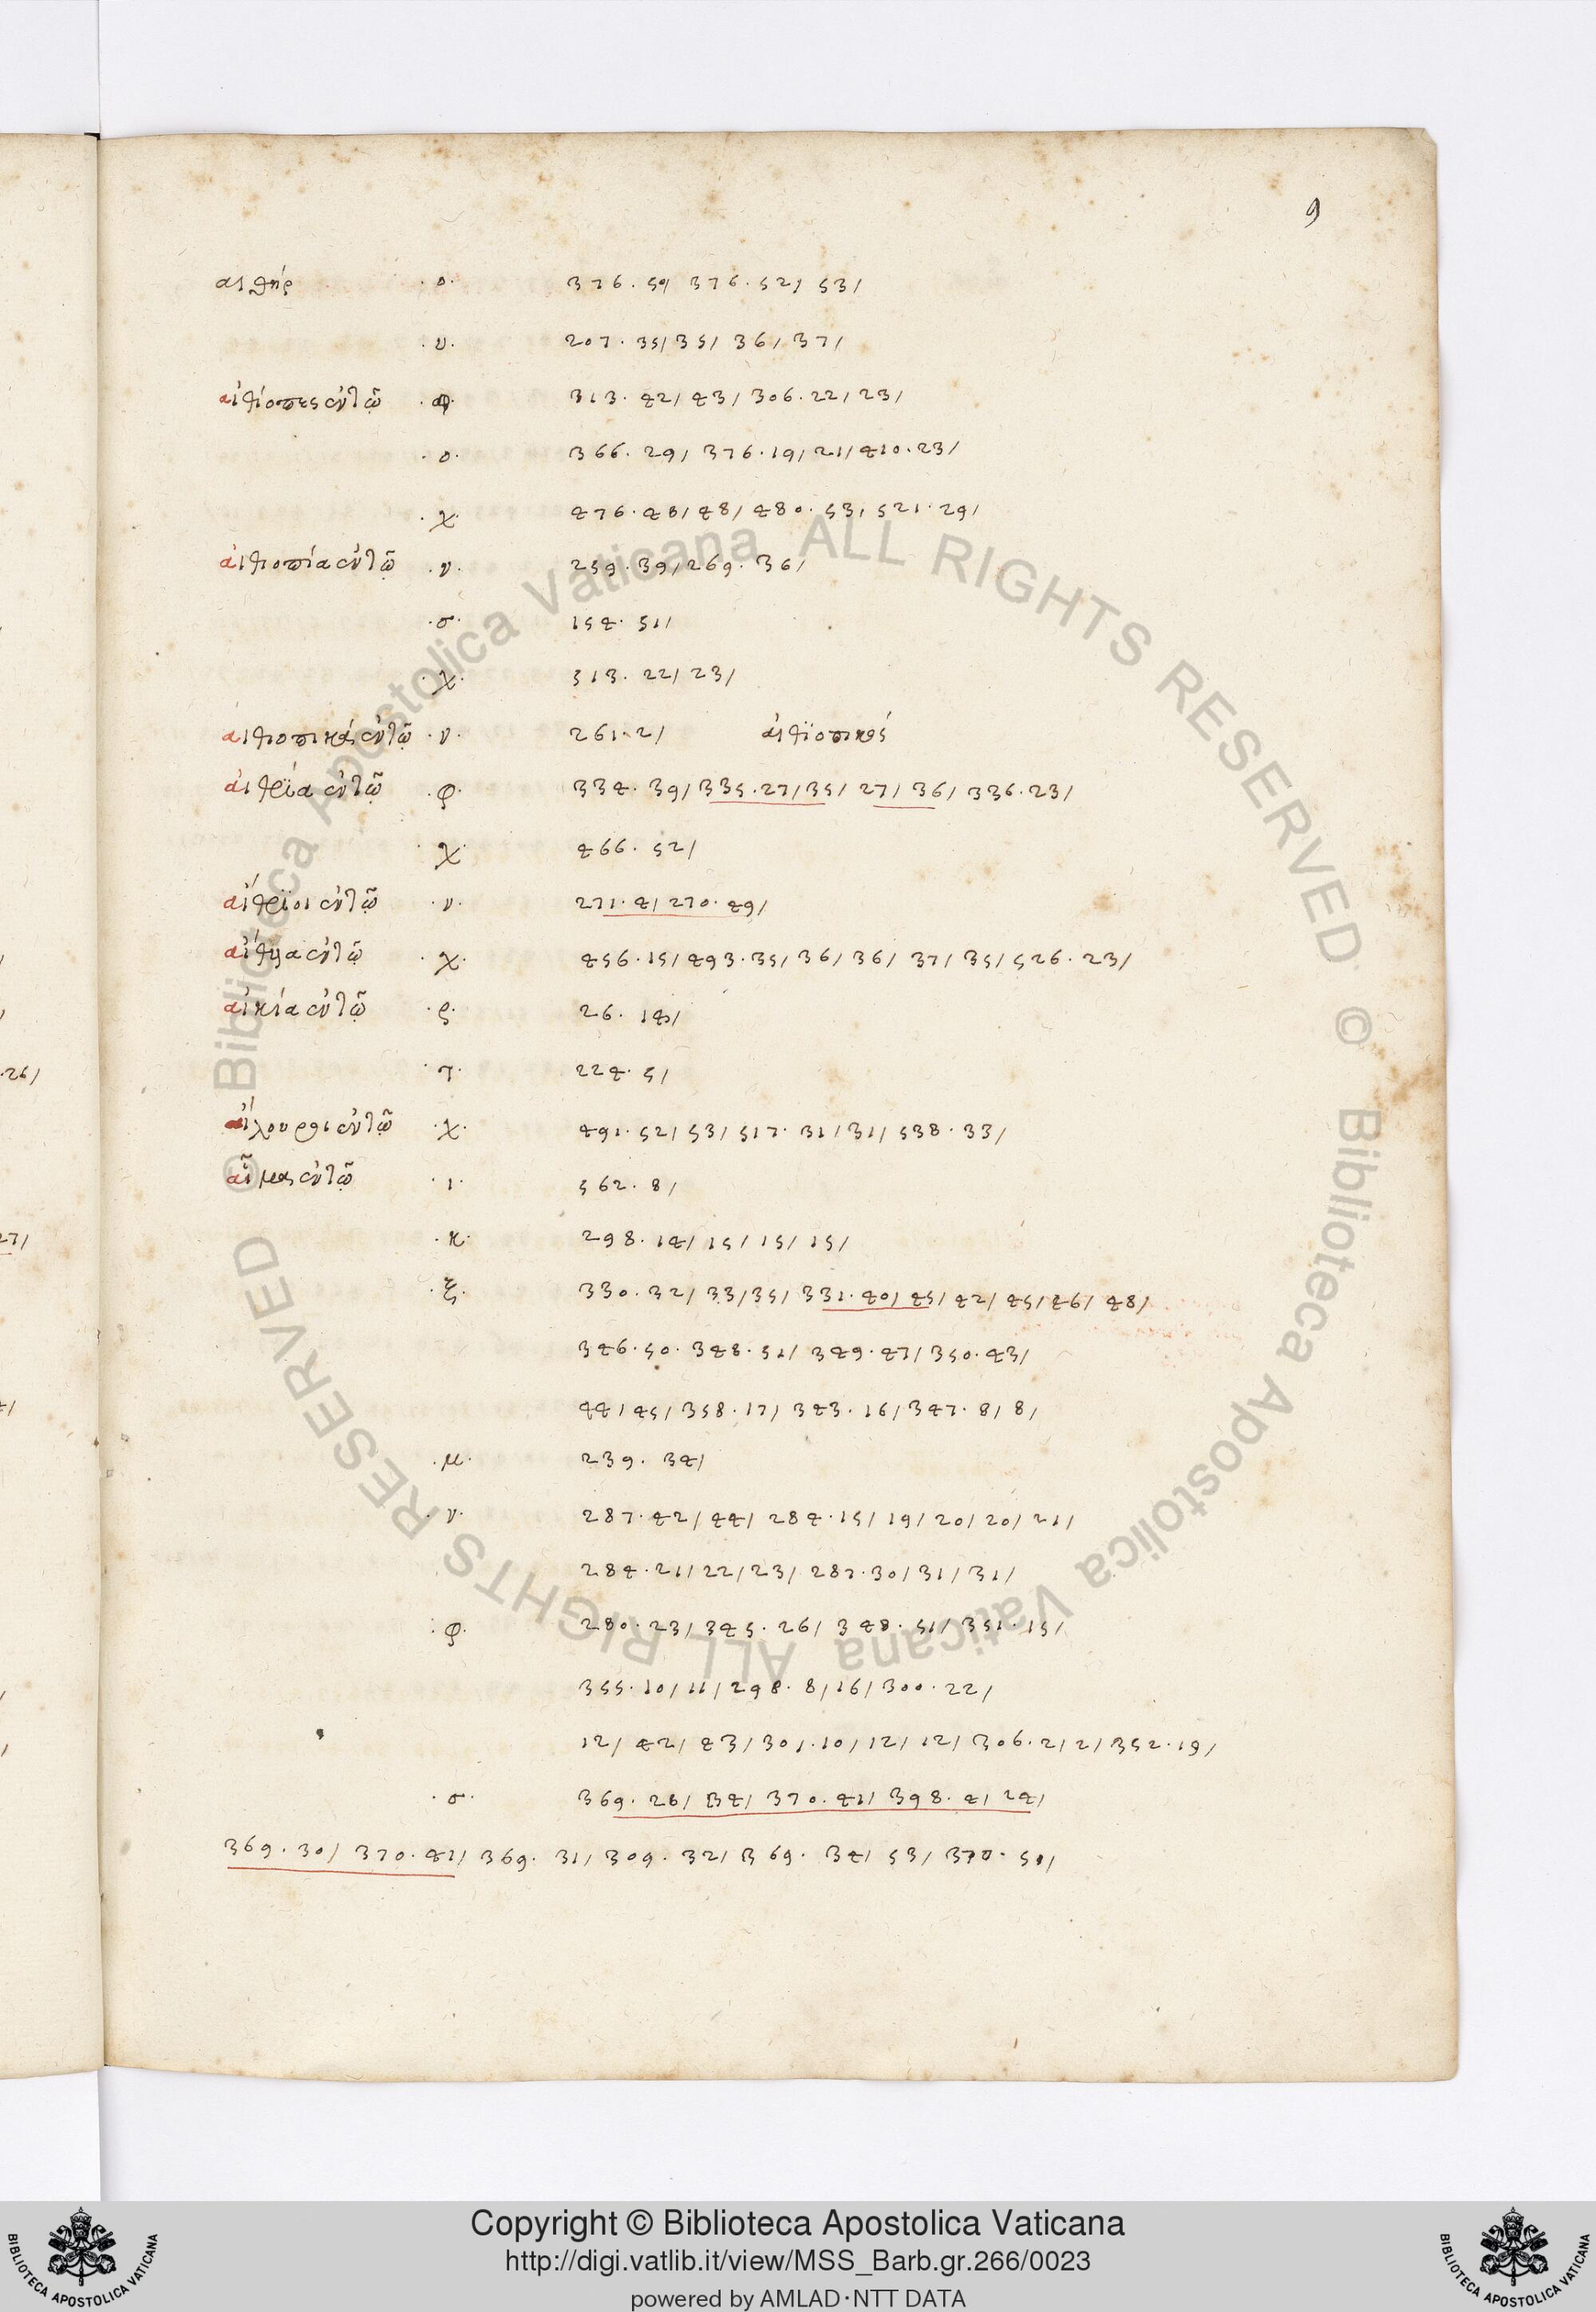 9
αιθήρ ·ο· 376·50/ 376·52/ 53/
·υ· 207·35/35/ 36/37/
αἰθίοπες ἐν τῷ ·φ· 313·42/43/306·22/23/
·ο· 366·29/376·19/21/410·23/
·χ· 476·48/48/480·53/521·29/
αἰθιοπία ἐν τῷ ·ν· 259·39/269·36/
·σ· 154·51/
·χ· 513·22/23/
αἰθιοπικός ἐν τῷ ·ν· 261·2/ αἰθϊοπικός
αἰθρϊα ἐν τῷ ·φ· 334·39/335·27/35/27/36/336·23/
·χ· 466·52/
αἴθρϊοι ἐν τῷ ·ν· 271·4/270·49/
αἴθυα ἐν τῷ ·χ· 456·15/493·35/36/36/37/35/526·23/
αἰκία ἐν τῷ ·ρ· 26·14/
·τ· 224·5/
αἴλουροι ἐν τῷ ·χ· 491·52/53/517·31/31/538·33/
αἷμα ἐν τῷ ·ι· 562·8/
·κ· 298·14/15/15/15/
·ξ· 330·32/33/35/331·40/45/42/45/46/48/
346·50·348·51/349·47/350·43/
44/45/358·17/343·16/347·8/8/
·μ· 239·34/
·ν· 287·42/44/284·15/19/20/20/21/
284·21/22/23/287·30/31/31/
·φ· 280·23/345·26/348·51/351·15/
355·10/11/298·8/16/300·22/
12/42/43/301·10/12/12/306·2/2/352·19/
·σ· 369·26/34/370·41/398·4/24/
369·30/370·41/369·31/309·32/369·34/53/370·51/
Copyright © Biblioteca Apostolica Vaticana
http://digi.vatlib.it/view/MSS_Barb.gr.266/0023
powered by AMLAD·NTT DATA